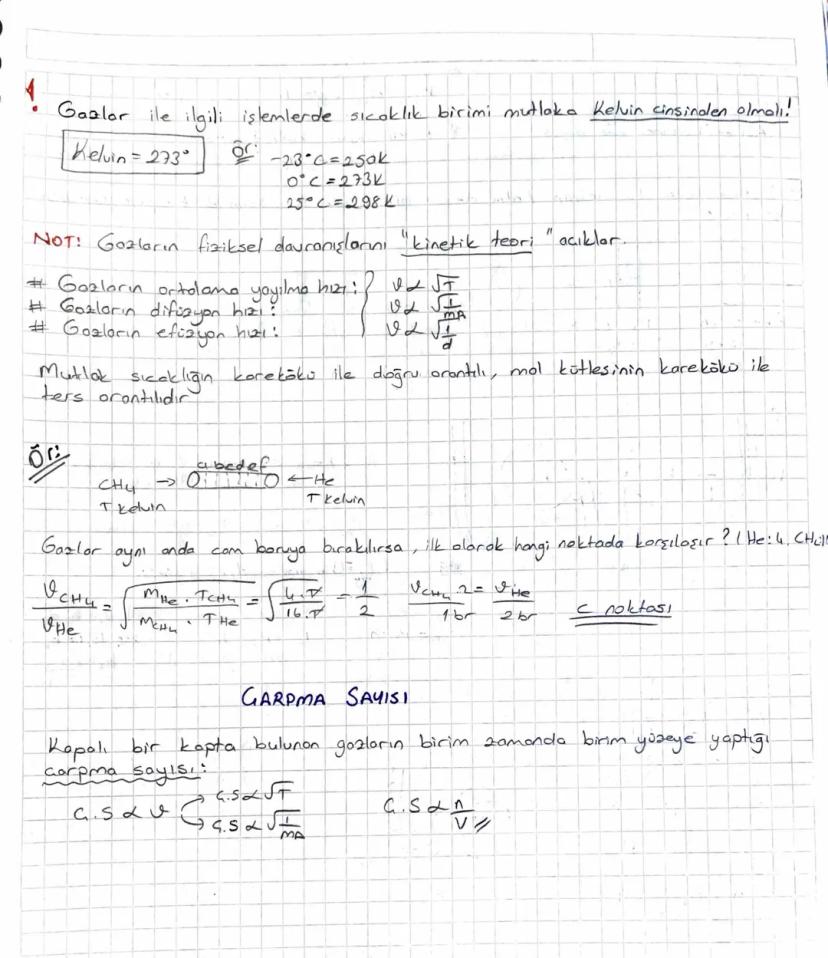 ! Gazlar ile ilgili işlemlerde sıcaklık birimi mutlaka Kelvin cinsinden olmalı!
Kelvin = 273° Ör: -23°C = 250K
0°C = 273K
25°C = 298K
NOT: Gazların fiziksel davranışlarını "kinetik teori" açıklar.
# Gazların ortalama yayılma hızı: } v α √T
# Gazların difüzyon hızı: v α √1/MA
# Gazların efüzyon hızı: v α √1/d
Mutlak sıcaklığın karekökü ile doğru orantılı, mol kütlesinin karekökü ile
ters orantılıdır
Ör:
a b c d e f
CH4 → ← He
T kelvin T kelvin
Gazlar aynı anda cam boruya bırakılırsa, ilk olarak hangi noktada karşılaşır? (He:4, CH4:1
vCH4/vHe = √(MHe . TCH4 / MCH4 . THe) = √(4.T / 16.T) = 1/2 vCH4.2/1br = vHe/2br c noktası
ÇARPMA SAYISI
Kapalı bir kapta bulunan gazların birim zamanda birim yüzeye yaptığı
çarpma sayısı:
Ç.S α v → Ç.S α √T Ç.S α n/V
→ Ç.S α √1/MA